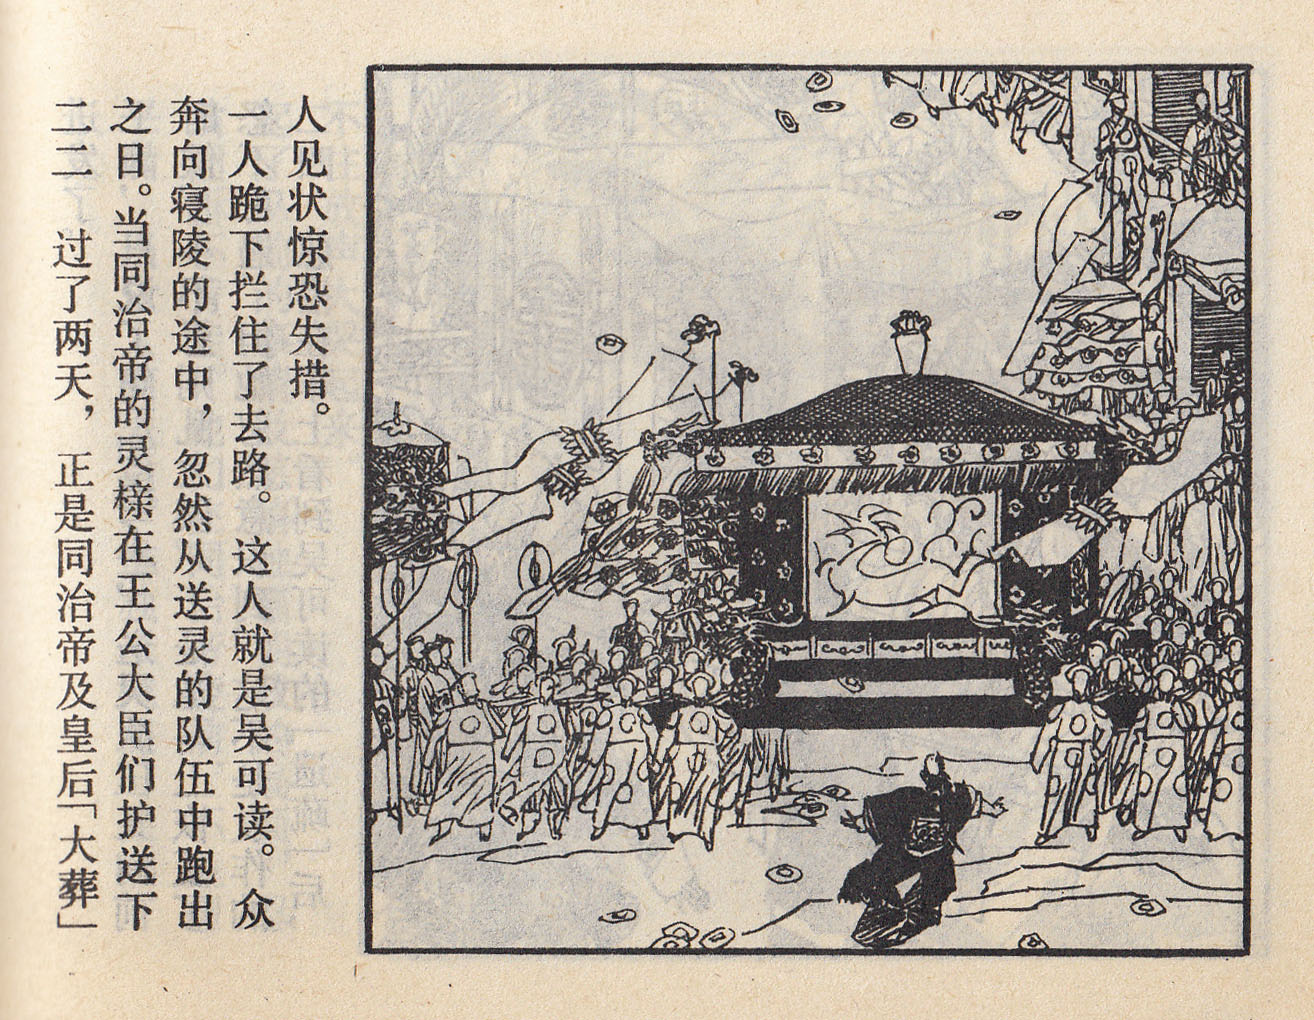 二二 过了两天，正是同治帝及皇后「大葬」
之日。当同治帝的灵榇在王公大臣们护送下
奔向寝陵的途中，忽然从送灵的队伍中跑出
一人跪下拦住了去路。这人就是吴可读。众
人见状惊恐失措。